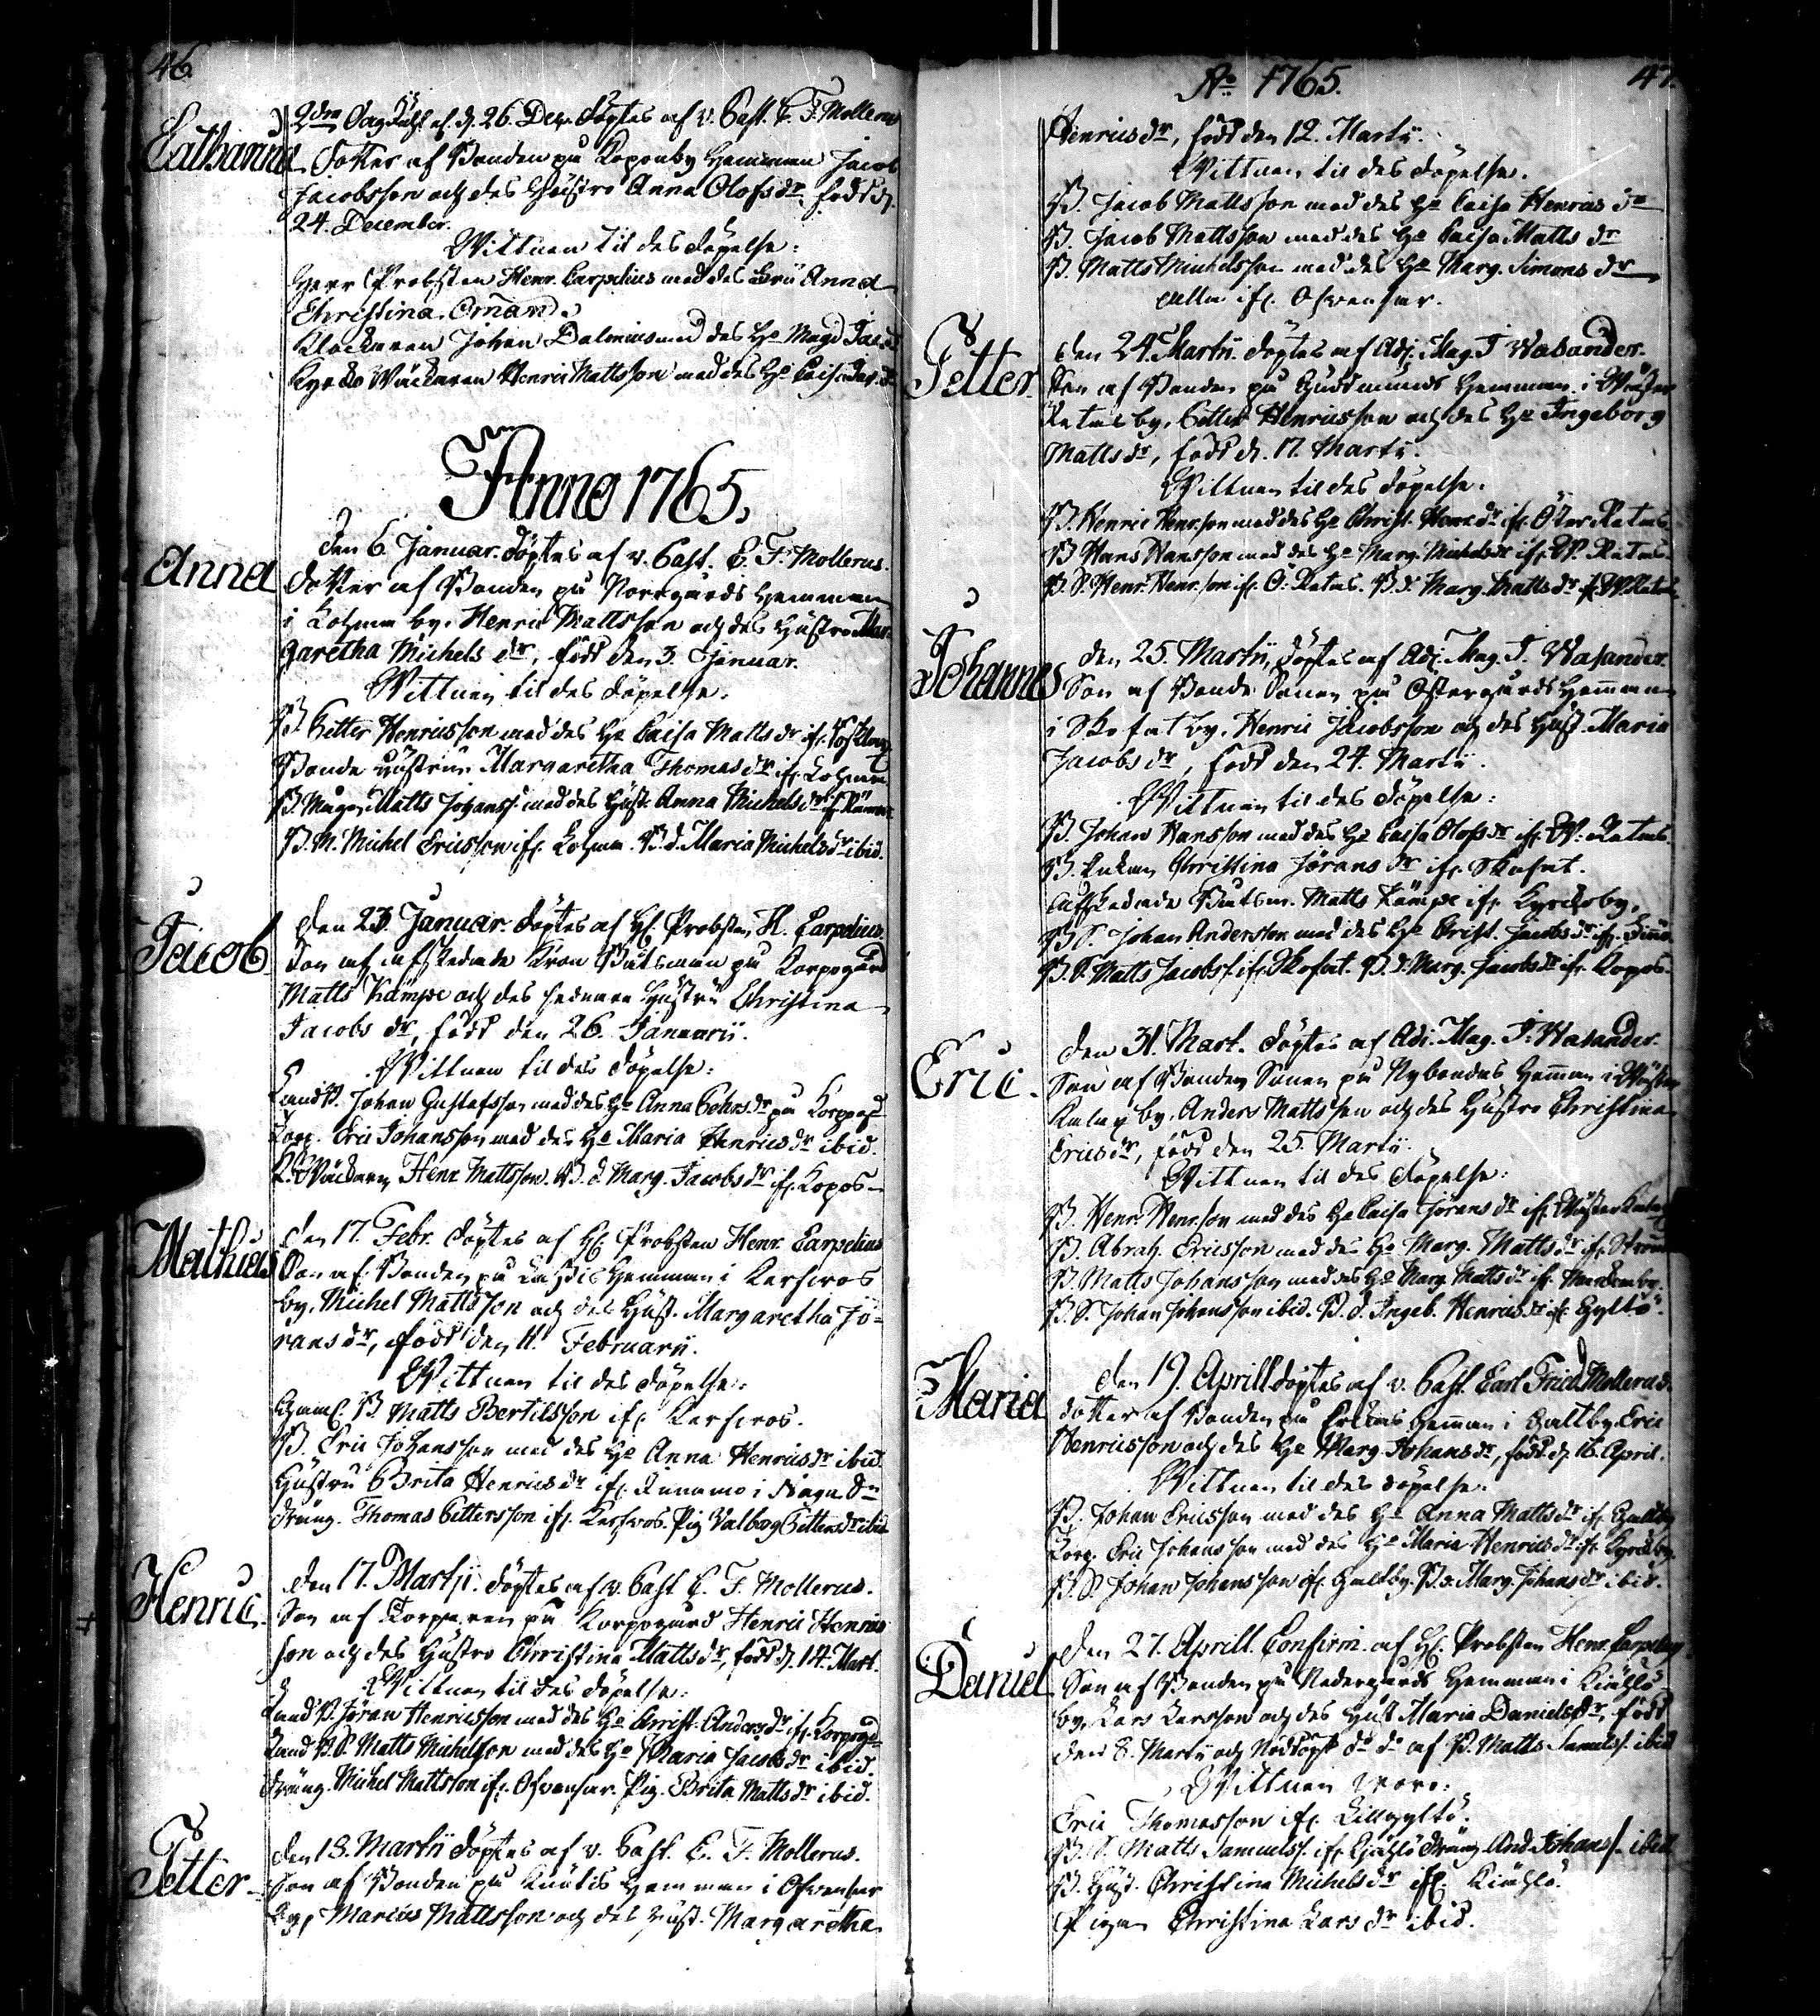 46.
2dra Dag Juhl d. 26. Dec. döptes af v. Past. C. F. Mollerus
Catharina
dotter af Bonden på Koponby Hemman Jacob
Jacobsson och des Hustro Anna Olofs dr, född d.
24. December.
Wittnen til des döpelse:
Herr Probsten Henr. Carpelius med des Fru Anna
Christina Ornæa.
Klockaren Johan Dalenius med des Ho Magd.
Kyrko Wäcktaren Henric Mattsson med des Ho Caisa
Anno 1765.
Den 6. Januar. döptes af v. Past. C. F. Mollerus.
Anna
dotter af Bonden på Norrgårds Hemman
i Lohm by, Henric Mattsson och des Hustro Mar-
garetha Michels dr, född den 3. Januar.
Wittnen til des döpelse.
B. Petter Henricsson med des Ho Caisa Matts dr if.
Bonde Hustrun Margaretha Thomas dr if. Lohm
B. Mågen Matts Johanss. med des Hust. Anna Michels dr if.
B. M. Michel Ericsson if. Lohm. B. d. Maria Michels dr ibid.
Den 23. Januar. döptes af H. Probsten H. Carpelius.
Jacob
Son af afskedade Kron Båtsman på Korpogård
Matts Kämpe och des Hustru Christina
Jacobs dr, född den 26. Januarii.
Wittnen til des döpelse:
Landb. Johan Gustafsson med des Ho Anna Pehrs dr på Korpogd
Torp. Eric Johansson med des Ho Maria Henrics dr ibid.
K. Wäcktaren Henr. Mattsson. B. d. Marg. Jacobs dr if. Kopos
Den 17. Febr. döptes af H. Probsten Henr. Carpelius
Mathias
Son af Bonden på Hemman i Kersvos
by, Michel Mattsson och des Hust. Margaretha Jö-
rans dr, född den 11. Februarii.
Wittnen til des döpelse:
B. Matts Bertilsson if. Kersvos.
B. Eric Johansson med des Ho Anna Henrics dr ibid.
Hustru Brita Henrics dr if. i Nagu Sn
Dräng. Thomas Pettersson if. Kersvos. Pig. Valborg Petters dr ibid
Den 17. Martii döptes af v. Past. C. F. Mollerus.
Henric.
Son af Torparen på Korpogård Henric Henrics
son och des Hustro Christina Matts dr, född d. 14. Mart.
Wittnen til des döpelse:
Landb. Jöran Henricsson med des Ho Christ. Anders dr if. Korpogd
Landb. S. Matts Michelsson med des Ho Maria Jacobs dr ibid.
Dräng. Michel Mattsson if. Ofvensor. Pig. Brita Matts dr ibid.
Den 18. Martii döptes af v. Past. C. F. Mollerus.
Petter.
Son af Bonden på Knutis Hemman i Ofvensor
by, Marcus Mattsson och des Hust. Margaretha
Ao 1765. 47.
Henrics dr, född den 12. Martii.
Wittnen til des döpelse.
B. Jacob Mattsson med des Ho Caisa Henrics dr
B. Jacob Mattsson med des Ho Caisa Matts dr
B. Matts Michelsson med des Ho Marg. Simons dr
alla if. Ofvensor.
Den 24. Martii döptes af Adj. Mag. J. Wasander.
Petter.
Son af Bonden på Gudmunds Hemman i Wäster
Retais by, Petter Henricsson och des Ho Ingeborg
Matts dr, född d. 17. Martii.
Wittnen til des döpelse.
B. Henric Henr.son med des Ho Christ. Hans dr if. Öster Retais
B. Hans Hansson med des Ho Marg. Michels dr if. W. Retais.
B. S. Henr. Henr.son if. Ö. Retais. B. d. Marg. Matts dr if. W. Retais.
Den 25. Martii, döptes af Adj. Mag. J. Wasander.
Johannes
Son af Bonde Sonen på Östergårds Hemman
i Skofat by, Henric Jacobsson och des Hust. Maria
Jacobs dr, född den 24. Martii.
Wittnen til des döpelse:
B. Johan Hansson med des Ho Caisa Olofs dr if. W. Retais.
B. Enkan Christina Jörans dr if. Skofat.
Afskedade Båtsm. Matts Kämpe if. Kyrkoby.
B. S. Johan Andersson med des Ho Christ. Jacobs dr if.
B. S. Matts Jacobss. if. Skofat. B. d. Marg. Jacobs dr if. Kopos.
Den 31. Mart. döptes af Adj. Mag. J. Wasander.
Eric.
Son af Bonden Sonen på Nybondas Hemman i Wäster
Kalax by, Anders Mattsson och des Hustro Christina
Erics dr, född den 25. Martii.
Wittnen til des döpelse:
B. Henr. Henr.son med des Ho Caisa Jörans dr if. Wäster Kalax
B. Abrah. Ericsson med des Ho Marg. Matts dr if.
B. Matts Johansson med des Ho Marg. Matts dr if.
B. S. Johan Johansson ibid. B. d. Ingeb. Henrics dr if. Gyltö.
Den 19. Aprill döptes af v. Past. Carl Fried. Mollerus.
Maria
dotter af Bonden på Erkas Hemman i Galtby Eric
Henricsson och des Ho Marg. Johans dr, född d. 16. April.
Wittnen til des döpelse.
B. Johan Ericsson med des Ho Anna Matts dr if. Galtby
Torp. Eric Johansson med des Ho Maria Henrics dr if. Kyrkby.
B. S. Johan Johansson if. Galtby. B. d. Marg. Johans dr ibid.
Den 27. Aprill Confirm. af H. Probsten Henr. Carpelius
Daniel
Son af Bonden på Nedergårds Hemman i Kirjlö
by, Lars Larsson och des Hust. Maria Daniels dr, född
den 8. Martii och Nöddöpt do do af B. Matts Samuelss. ibid
Wittnen woro:
Eric Thomasson if. Lillgyltö.
B. S. Matts Samuelss. if. Dräng And. Johanss. ibid
B. Hust. Christina Michels dr if. Kirjlö.
Pigan Christina Lars dr ibid.